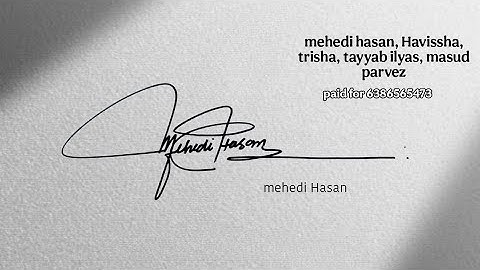 mehedi hasan, Havissha,
trisha, tayyab ilyas, masud
parvez
paid for 6386565473
Mehedi Hasan
mehedi Hasan